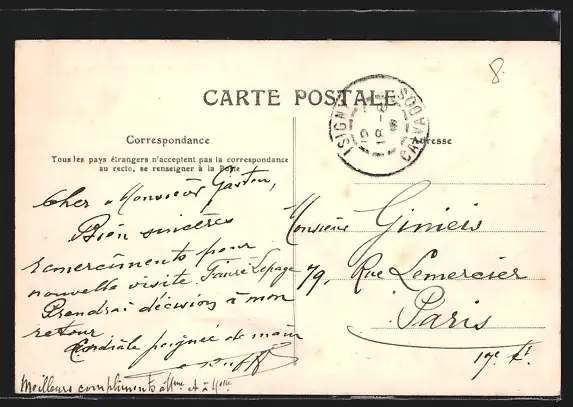 8.
CARTE POSTALE
ISIGNY
CALVADOS
Correspondance
Adresse
Tous les pays étrangers n'acceptent pas la correspondance
au recto, se renseigner à la Poste
Cher Monsieur Gaston,
Bien sincères
remerciments pour
nouvelle visite Fauré Lepage
Prendrai décision à mon
retour
Cordiale poignée de main
Meilleurs compliments à Mme et à
Monsieur
79, Rue Lemercier
Paris
17e